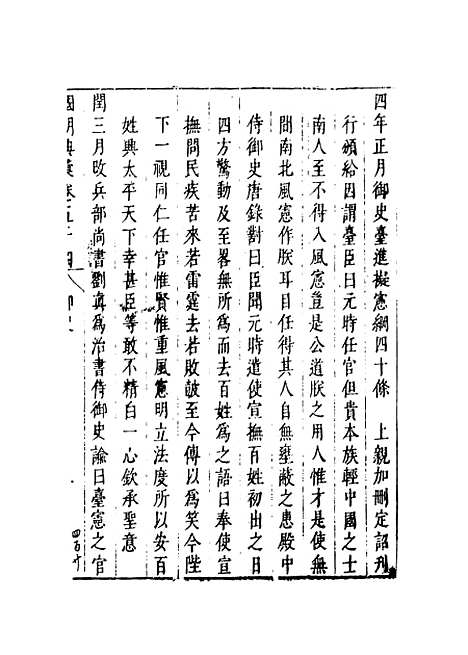 四年正月御史臺進擬憲綱四十條　上親加刪定詔刋
行頒給因謂臺臣曰元時任官但貴本族輕中國之士
南人至不得入風憲豈是公道朕之用人惟才是使無
間南北風憲作朕耳目任得其人自無壅蔽之患殿中
侍御史唐鐸對曰臣聞元時遣使宣撫百姓初出之日
四方驚動及至畧無所為而去百姓為之語曰奉使宣
撫問民疾苦來若雷霆去若敗皷至今傳以為笑今陛
下一視同仁任官惟賢惟重風憲明立法度所以安百
姓興太平天下幸甚臣等敢不精白一心欽承聖意
閏三月改兵部尚書劉貞為治書侍御史諭曰臺憲之官
國朝典彙卷之五十四
御史
四百十